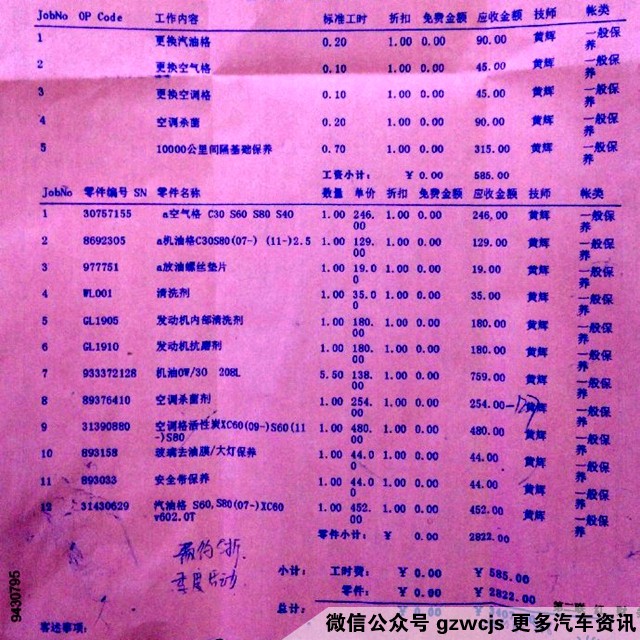 JobNo OP Code 工作内容 标准工时 折扣 免费金额 应收金额 技师 帐类
1 更换汽油格 0.20 1.00 0.00 90.00 黄辉 一般保养
2 更换空气格 0.10 1.00 0.00 45.00 黄辉 一般保养
3 更换空调格 0.10 1.00 0.00 45.00 黄辉 一般保养
4 空调杀菌 0.20 1.00 0.00 90.00 黄辉 一般保养
5 10000公里间隔基础保养 0.70 1.00 0.00 315.00 黄辉 一般保养
工资小计: ¥ 0.00 585.00
JobNo 零件编号 SN 零件名称 数量 单价 折扣 免费金额 应收金额 技师 帐类
1 30757155 a空气格 C30 S60 S80 S40 1.00 246.00 1.00 0.00 246.00 黄辉 一般保养
2 8692305 a机油格C30S80(07-) (11-)2.5 1.00 129.00 1.00 0.00 129.00 黄辉 一般保养
3 977751 a放油螺丝垫片 1.00 19.00 1.00 0.00 19.00 黄辉 一般保养
4 WL001 清洗剂 1.00 35.00 1.00 0.00 35.00 黄辉 一般保养
5 GL1905 发动机内部清洗剂 1.00 180.00 1.00 0.00 180.00 黄辉 一般保养
6 GL1910 发动机抗磨剂 1.00 180.00 1.00 0.00 180.00 黄辉 一般保养
7 933372128 机油0W/30 208L 5.50 138.00 1.00 0.00 759.00 黄辉 一般保养
8 89376410 空调杀菌剂 1.00 254.00 1.00 0.00 254.00 黄辉 一般保养
9 31390880 空调格活性炭XC60(09-)S60(11-)S80 1.00 480.00 1.00 0.00 480.00 黄辉 一般保养
10 893158 玻璃去油膜/大灯保养 1.00 44.00 1.00 0.00 44.00 黄辉 一般保养
11 893033 安全带保养 1.00 44.00 1.00 0.00 44.00 黄辉 一般保养
12 31430629 汽油格 S60,S80(07-)XC60 v602.0T 1.00 452.00 1.00 0.00 452.00 黄辉 一般保养
零件小计: ¥ 0.00 2822.00
小计: 工时费: ¥ 0.00 ¥ 585.00
零件: ¥ 0.00 ¥ 2822.00
总计: ¥
客述事项:
9430795
微信公众号 gzwcjs 更多汽车资讯